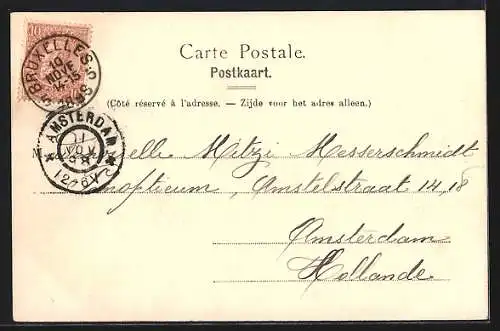 Carte Postale.
Postkaart.
(Côté réservé à l'adresse. — Zijde voor het adres alleen.)
BRUXELLES 5
10
NOVE
1898
AMSTERDAM
11
NOV
98
12-6V
Mitzi Messerschmidt
Panopticum, Amstelstraat 14,18
Amsterdam
Hollande.